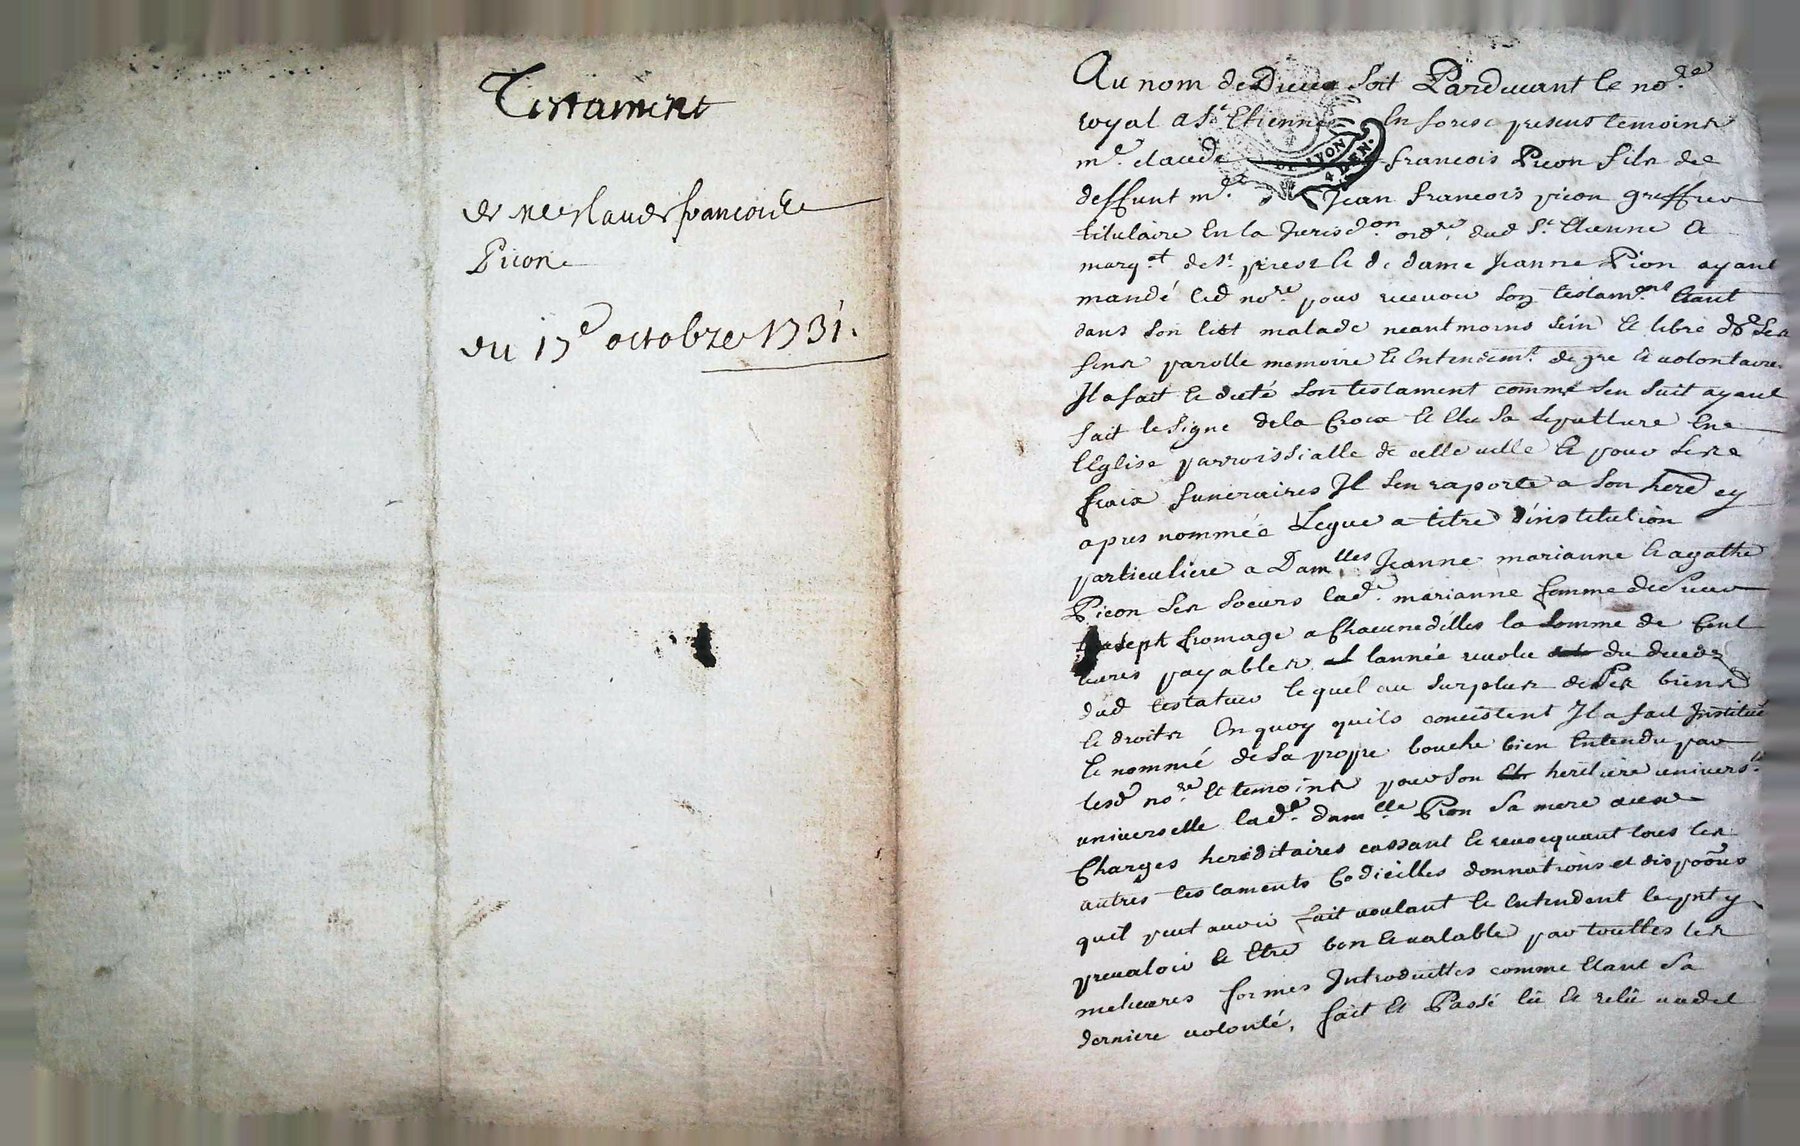 Testament
de me claude francois
Picon
du 17e octobre 1731.
Au nom de Dieu soit Pardevant le nore
royal a St Etienne En forest presens temoins
me. claude francois Picon fils de
deffunt me. Jean francois picon greffier
titulaire En la Jurisdon ordre. dud St. Etienne Et
marqat de St. priest Et de dame Jeanne Pion ayant
mandé led nore. pour recevoir son testamant Etant
dans son lict malade neantmoins sein Et libre de ses
sens parolle memoire Et Entendemt. de gre Et volontaire
Il a fait Et dicté son testament comme sen suit ayant
fait le signe de la Croix Et Elu sa sepulture En
lEglise parroissialle de cette ville Et pour ses
fraix funeraires Il sen raporte a son hered cy
apres nommée Legue a titre d'institution
particuliere a Damlles Jeanne marianne Et agathe
Picon ses soeurs lade. marianne femme de sieur
Joseph fromage a Chacune dElles la somme de Cent
livres payables lannée revolu du deces
dud testateur lequel au surplus de ses biens
Et droits En quoy quils concistent Il a fait Institué
Et nommé de sa propre bouche bien Entendu par
lesd nore. Et temoins pour son heritiere univers
universelle lade. damlle Pion sa mere aux
Charges hereditaires cassant Et revoequant tous les
autres testaments Codicilles donnations et dispoons
quil peut avoir fait voulant Et Entendent le pnt y
prevaloir Et Etre bon Et valable par touttes les
melieures formes Introduittes comme Etant sa
derniere volonté, fait Et Passé lû Et relû audit
LYON
DEN.